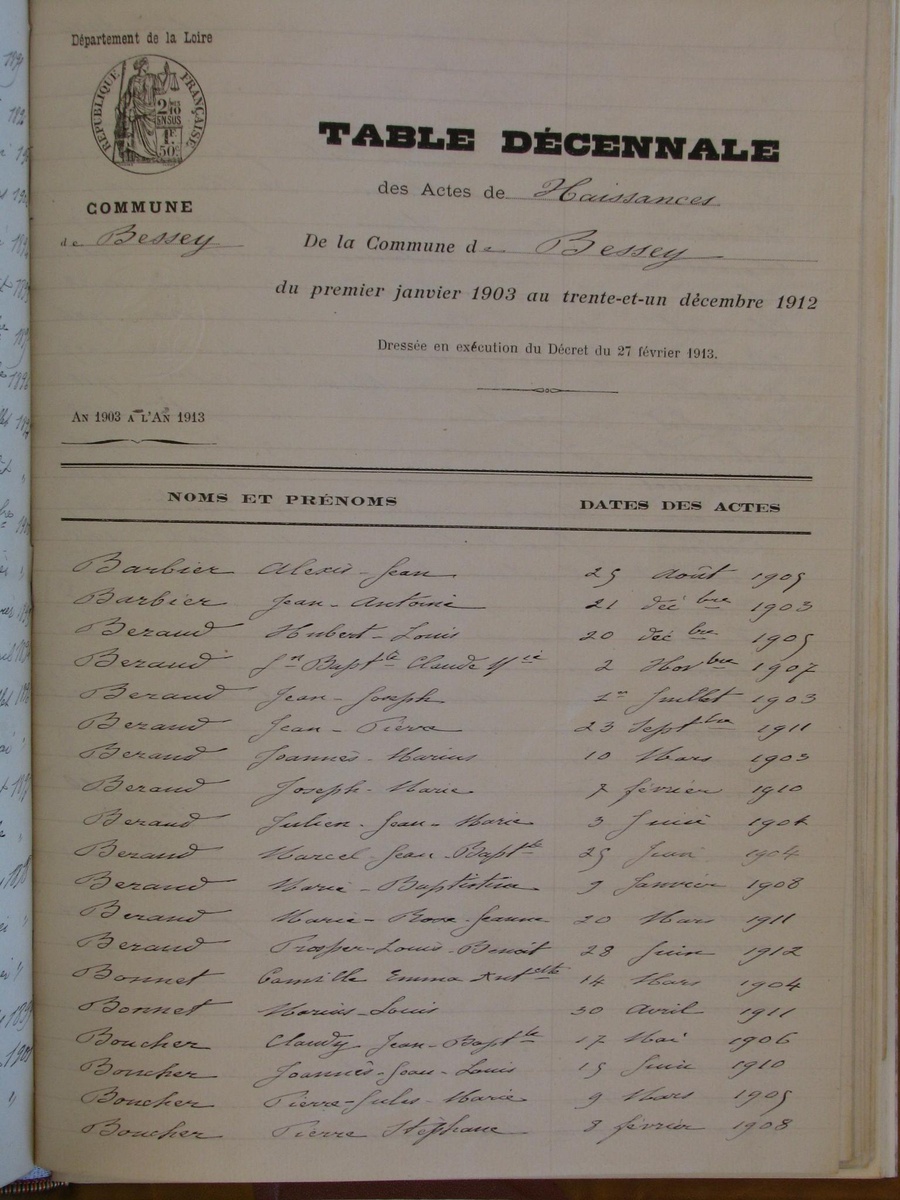 Département de la Loire
RÉPUBLIQUE FRANÇAISE
2/10
EN SUS
1F
50c
COMMUNE
de Bessey
TABLE DÉCENNALE
des Actes de Naissances
De la Commune de Bessey
du premier janvier 1903 au trente-et-un décembre 1912
Dressée en exécution du Décret du 27 février 1913.
AN 1903 A L'AN 1913
NOMS ET PRÉNOMS DATES DES ACTES
Barbier Alexis-Jean 25 Août 1905
Barbier Jean-Antoine 21 déc bre 1903
Beraud Hubert-Louis 20 déc bre 1905
Beraud Jn Bapt te Claude 2 Nov bre 1907
Beraud Jean-Joseph 1er Juillet 1903
Beraud Jean-Pierre 23 Sept bre 1911
Beraud Joannès-Marius 10 Mars 1903
Beraud Joseph-Marie 7 février 1910
Beraud Julien-Jean-Marie 3
Beraud Marcel-Jean-Bapt te 25 Juin 1904
Beraud Marie-Baptistine 9 Janvier 1908
Beraud Marie-Rose-Jeanne 20 Mars 1911
Beraud Prosper-Louis-Benoît 28 Juin 1912
Bonnet Camille Emma Ant ette 14 Mars 1904
Bonnet Marius-Louis 30 Avril 1911
Boucher Claudy Jean-Bapt te 17 Mai 1906
Boucher Joannès-Jean-Louis 15 Juin 1910
Boucher Pierre-Jules-Marie 9 Mars 1905
Boucher Pierre Stéphane 8 février 1908